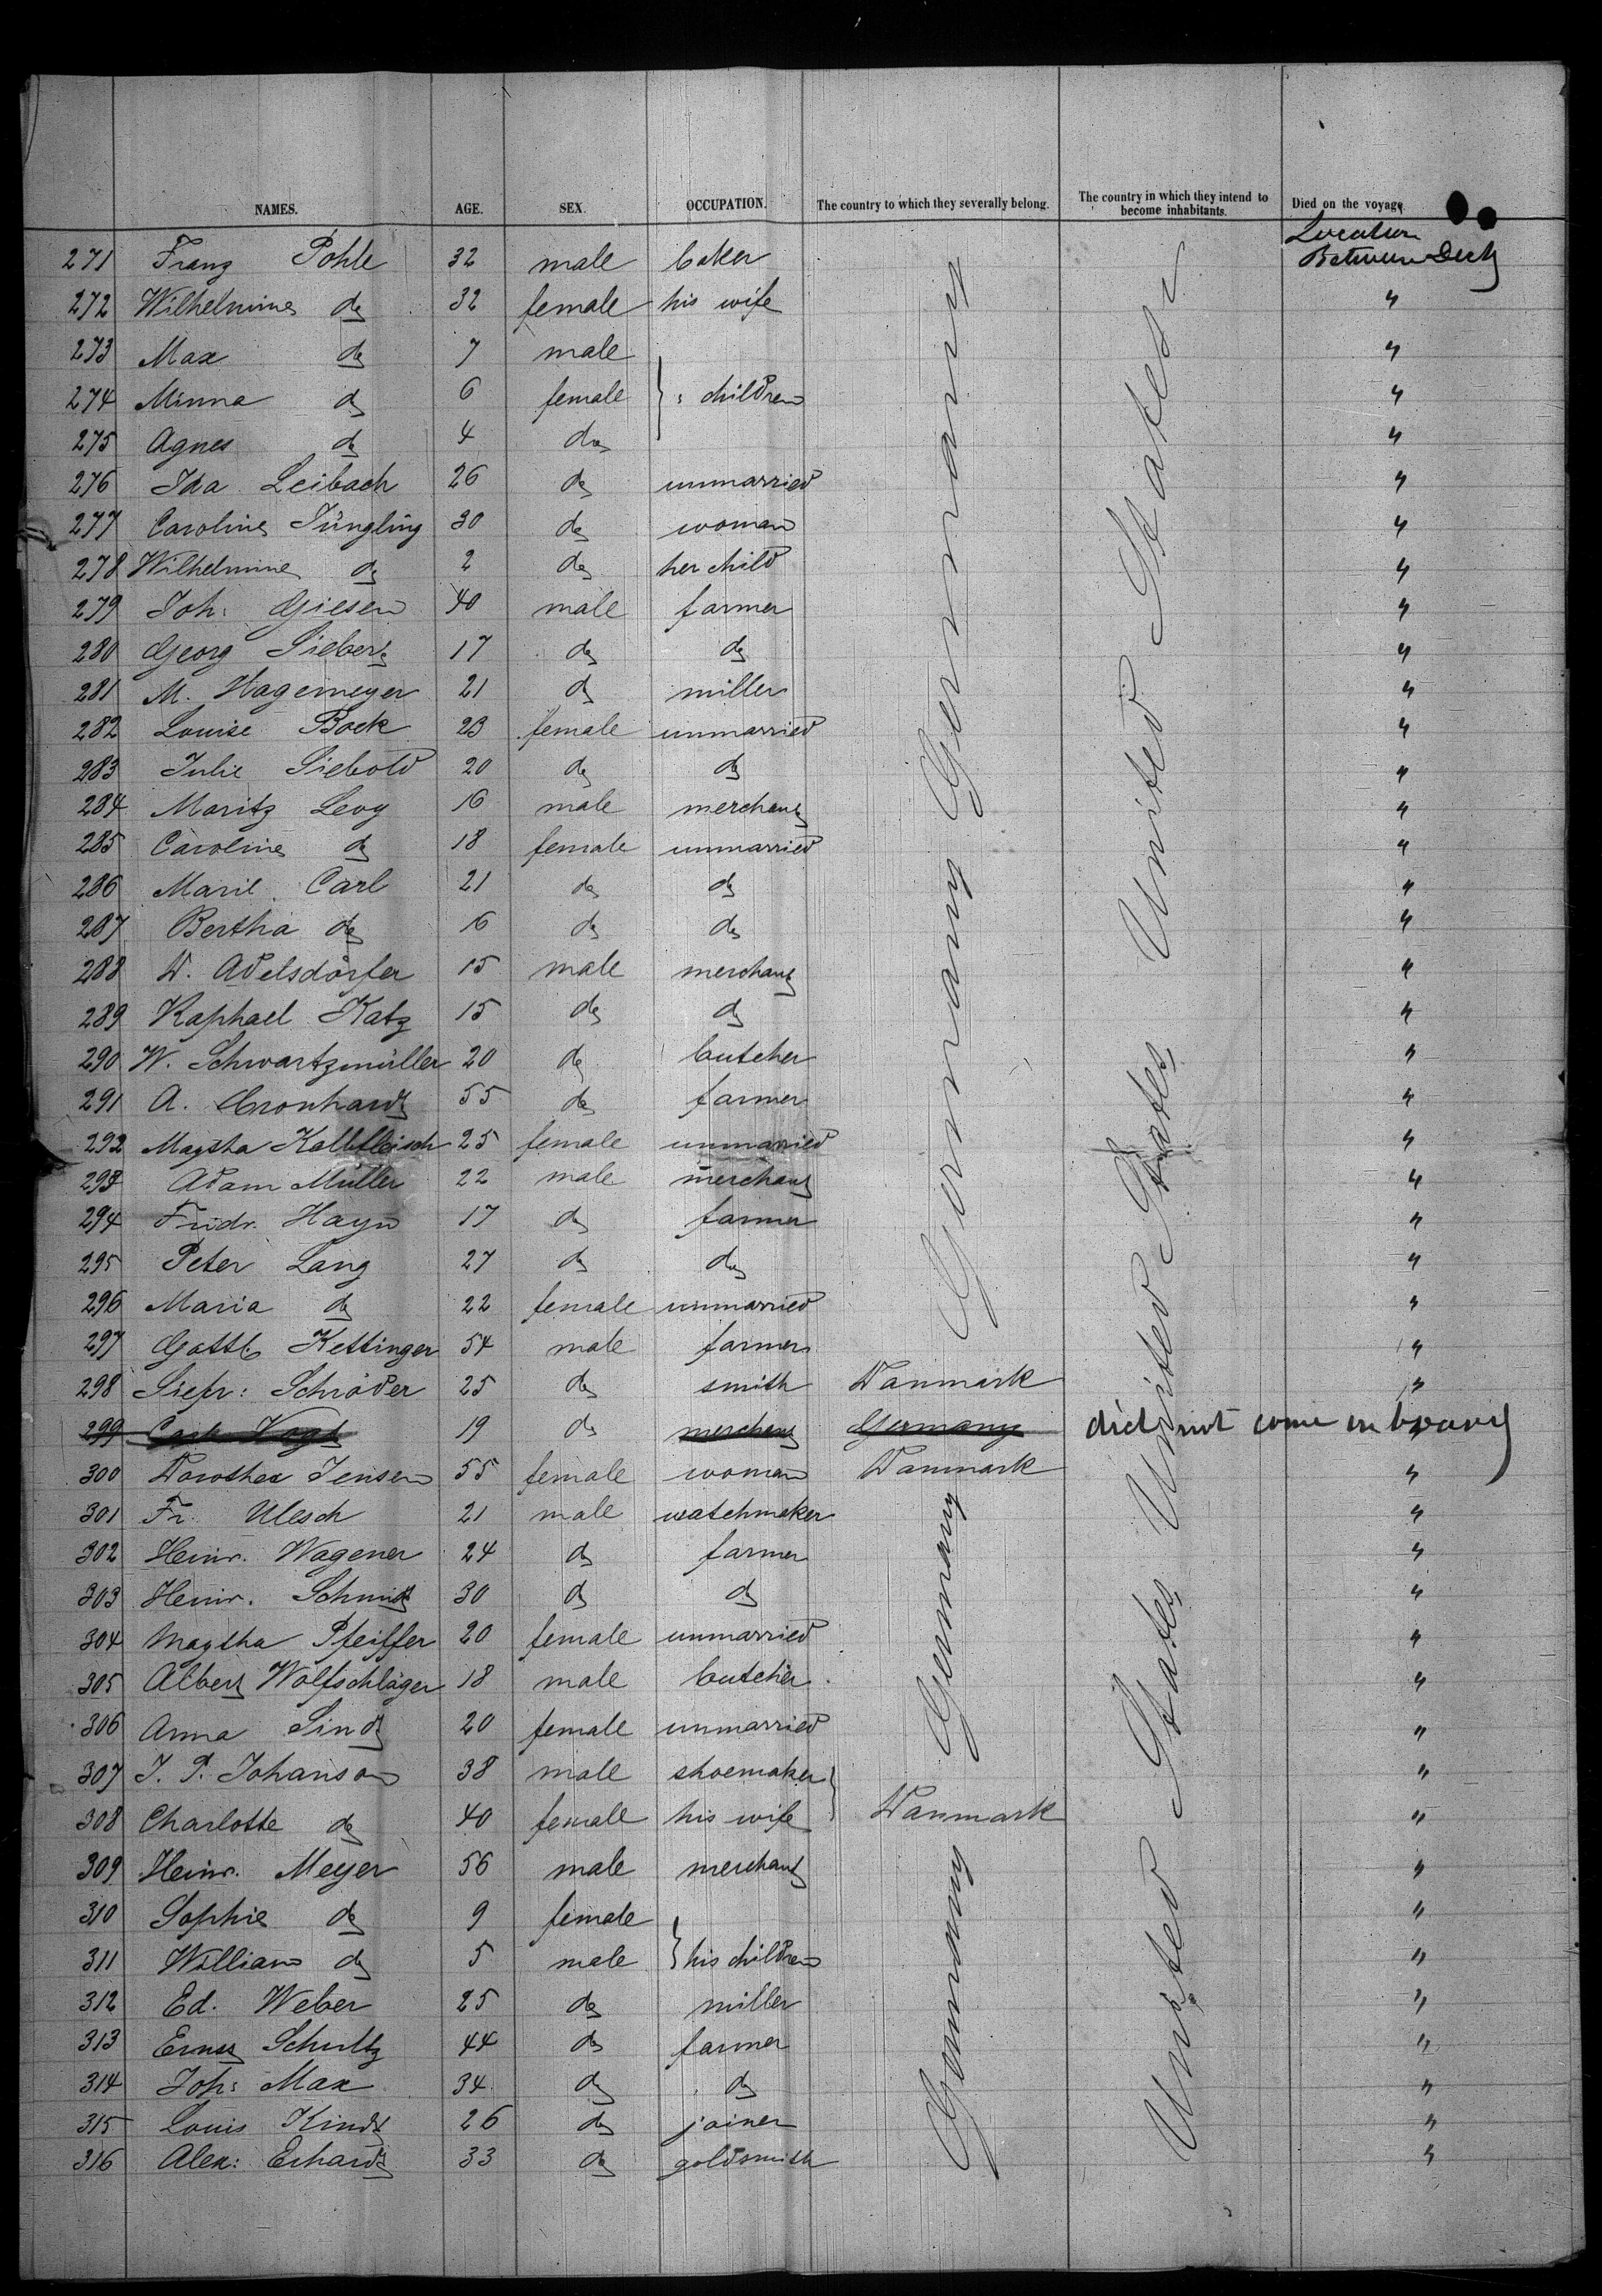 NAMES. AGE. SEX. OCCUPATION. The country to which they severally belong. The country in which they intend to become inhabitants. Died on the voyage.
Location
271 Franz Pohle 32 male baker Between Deck
272 Wilhelmine do 32 female his wife "
273 Max do 7 male "
274 Minna do 6 female } children "
275 Agnes do 4 do "
276 Ida Leibach 26 do unmarried "
277 Caroline Jüngling 30 do woman "
278 Wilhelmine do 2 do her child "
279 Joh: Giesen 40 male farmer "
280 Georg Siebert 17 do do "
281 M. Hagemeyer 21 do miller "
282 Louise Bock 23 female unmarried "
283 Julie Siebold 20 do do "
284 Moritz Levy 16 male merchant "
285 Caroline do 18 female unmarried "
286 Marie Carl 21 do do "
287 Bertha do 16 do do "
288 W. Adelsdörfer 15 male merchant "
289 Raphael Katz 15 do do "
290 W. Schwartzmüller 20 do butcher "
291 A. Cronhardt 55 do farmer "
292 Magtha Kalbfleisch 25 female unmarried "
293 Adam Müller 22 male merchant "
294 Friedr. Hayn 17 do farmer "
295 Peter Lang 27 do do "
296 Maria do 22 female unmarried "
297 Gottlb Kettinger 54 male farmer "
Germany Germany
United States
298 Siefr: Schröder 25 do smith Danmark "
299 Carl Vogt 19 do merchant Germany did not come on board
300 Dorothea Jensen 55 female woman Danmark "
301 Fr. Ulesch 21 male watchmaker "
302 Heinr. Wagener 24 do farmer "
303 Heinr. Schmidt 30 do do "
304 Magtha Pfeiffer 20 female unmarried "
305 Albert Wolfschläger 18 male butcher "
306 Anna Lindt 20 female unmarried "
Germany
United States
307 J. P. Johanson 38 male shoemaker } "
308 Charlotte do 40 female his wife Danmark "
309 Heinr. Meyer 56 male merchant "
310 Sophie do 9 female "
311 William do 5 male } his children "
312 Ed. Weber 25 do miller "
313 Ernst Schultz 44 do farmer "
314 Joh: Max 34 do do "
315 Louis Kindt 26 do joiner "
316 Alex: Erhardt 33 do goldsmith "
Germany
United States